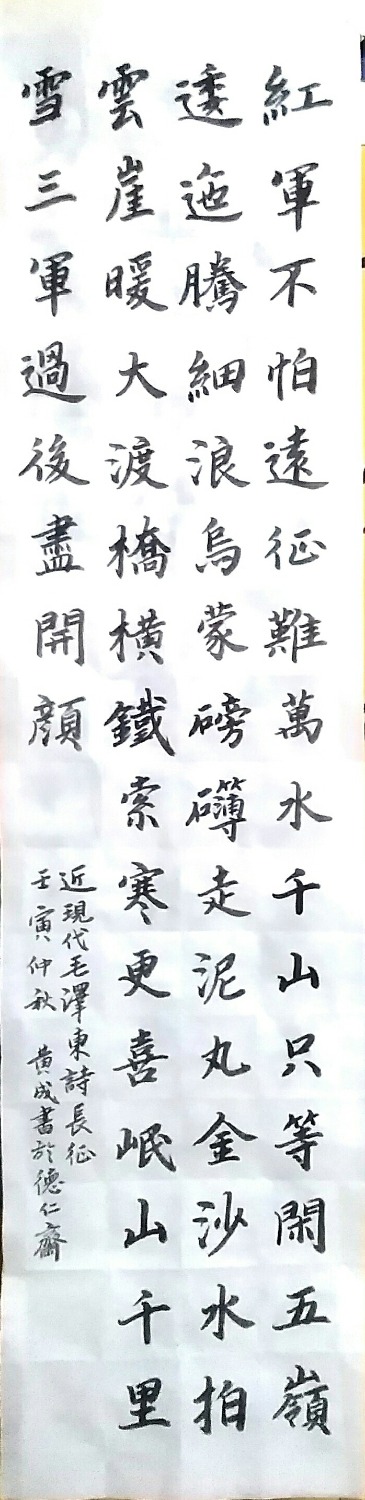 紅軍不怕遠征難萬水千山只等閑五嶺
逶迤騰細浪烏蒙磅礴走泥丸金沙水拍
雲崖暖大渡橋橫鐵索寒更喜岷山千里
雪三軍過後盡開顏
近現代毛澤東詩長征
壬寅仲秋 黃成書於德仁齋